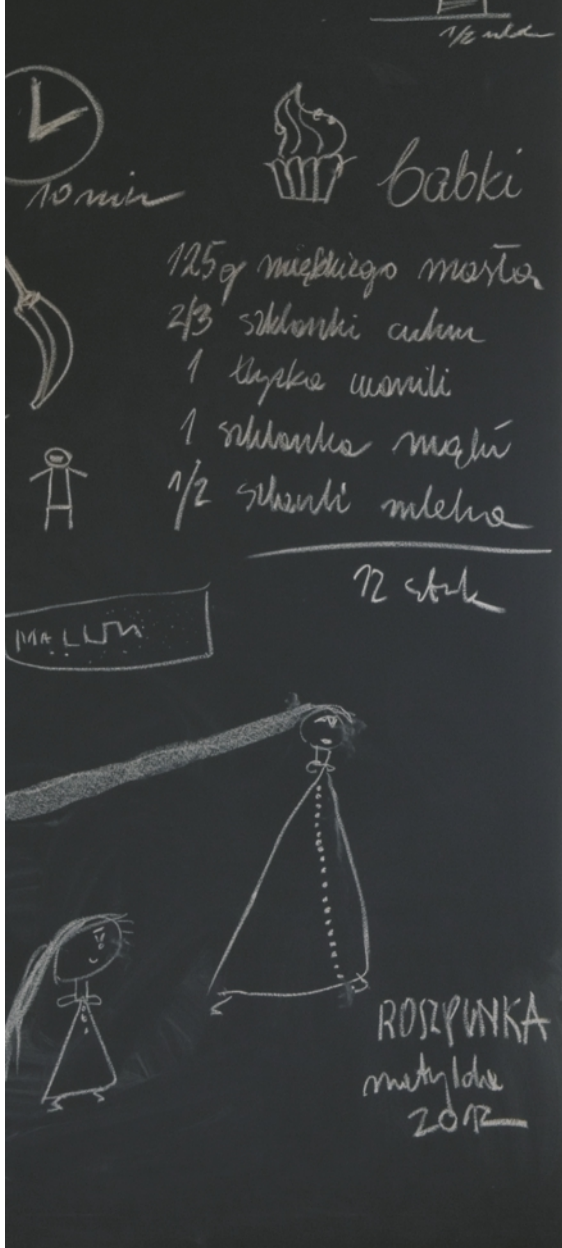 10 min
babki
125g miękkiego masła
2/3 szklanki cukru
1 łyżka wanili
1 szklanka mąki
1/2 szkanki mleka
12 sztuk
ROSZPUNKA
matylda
2012